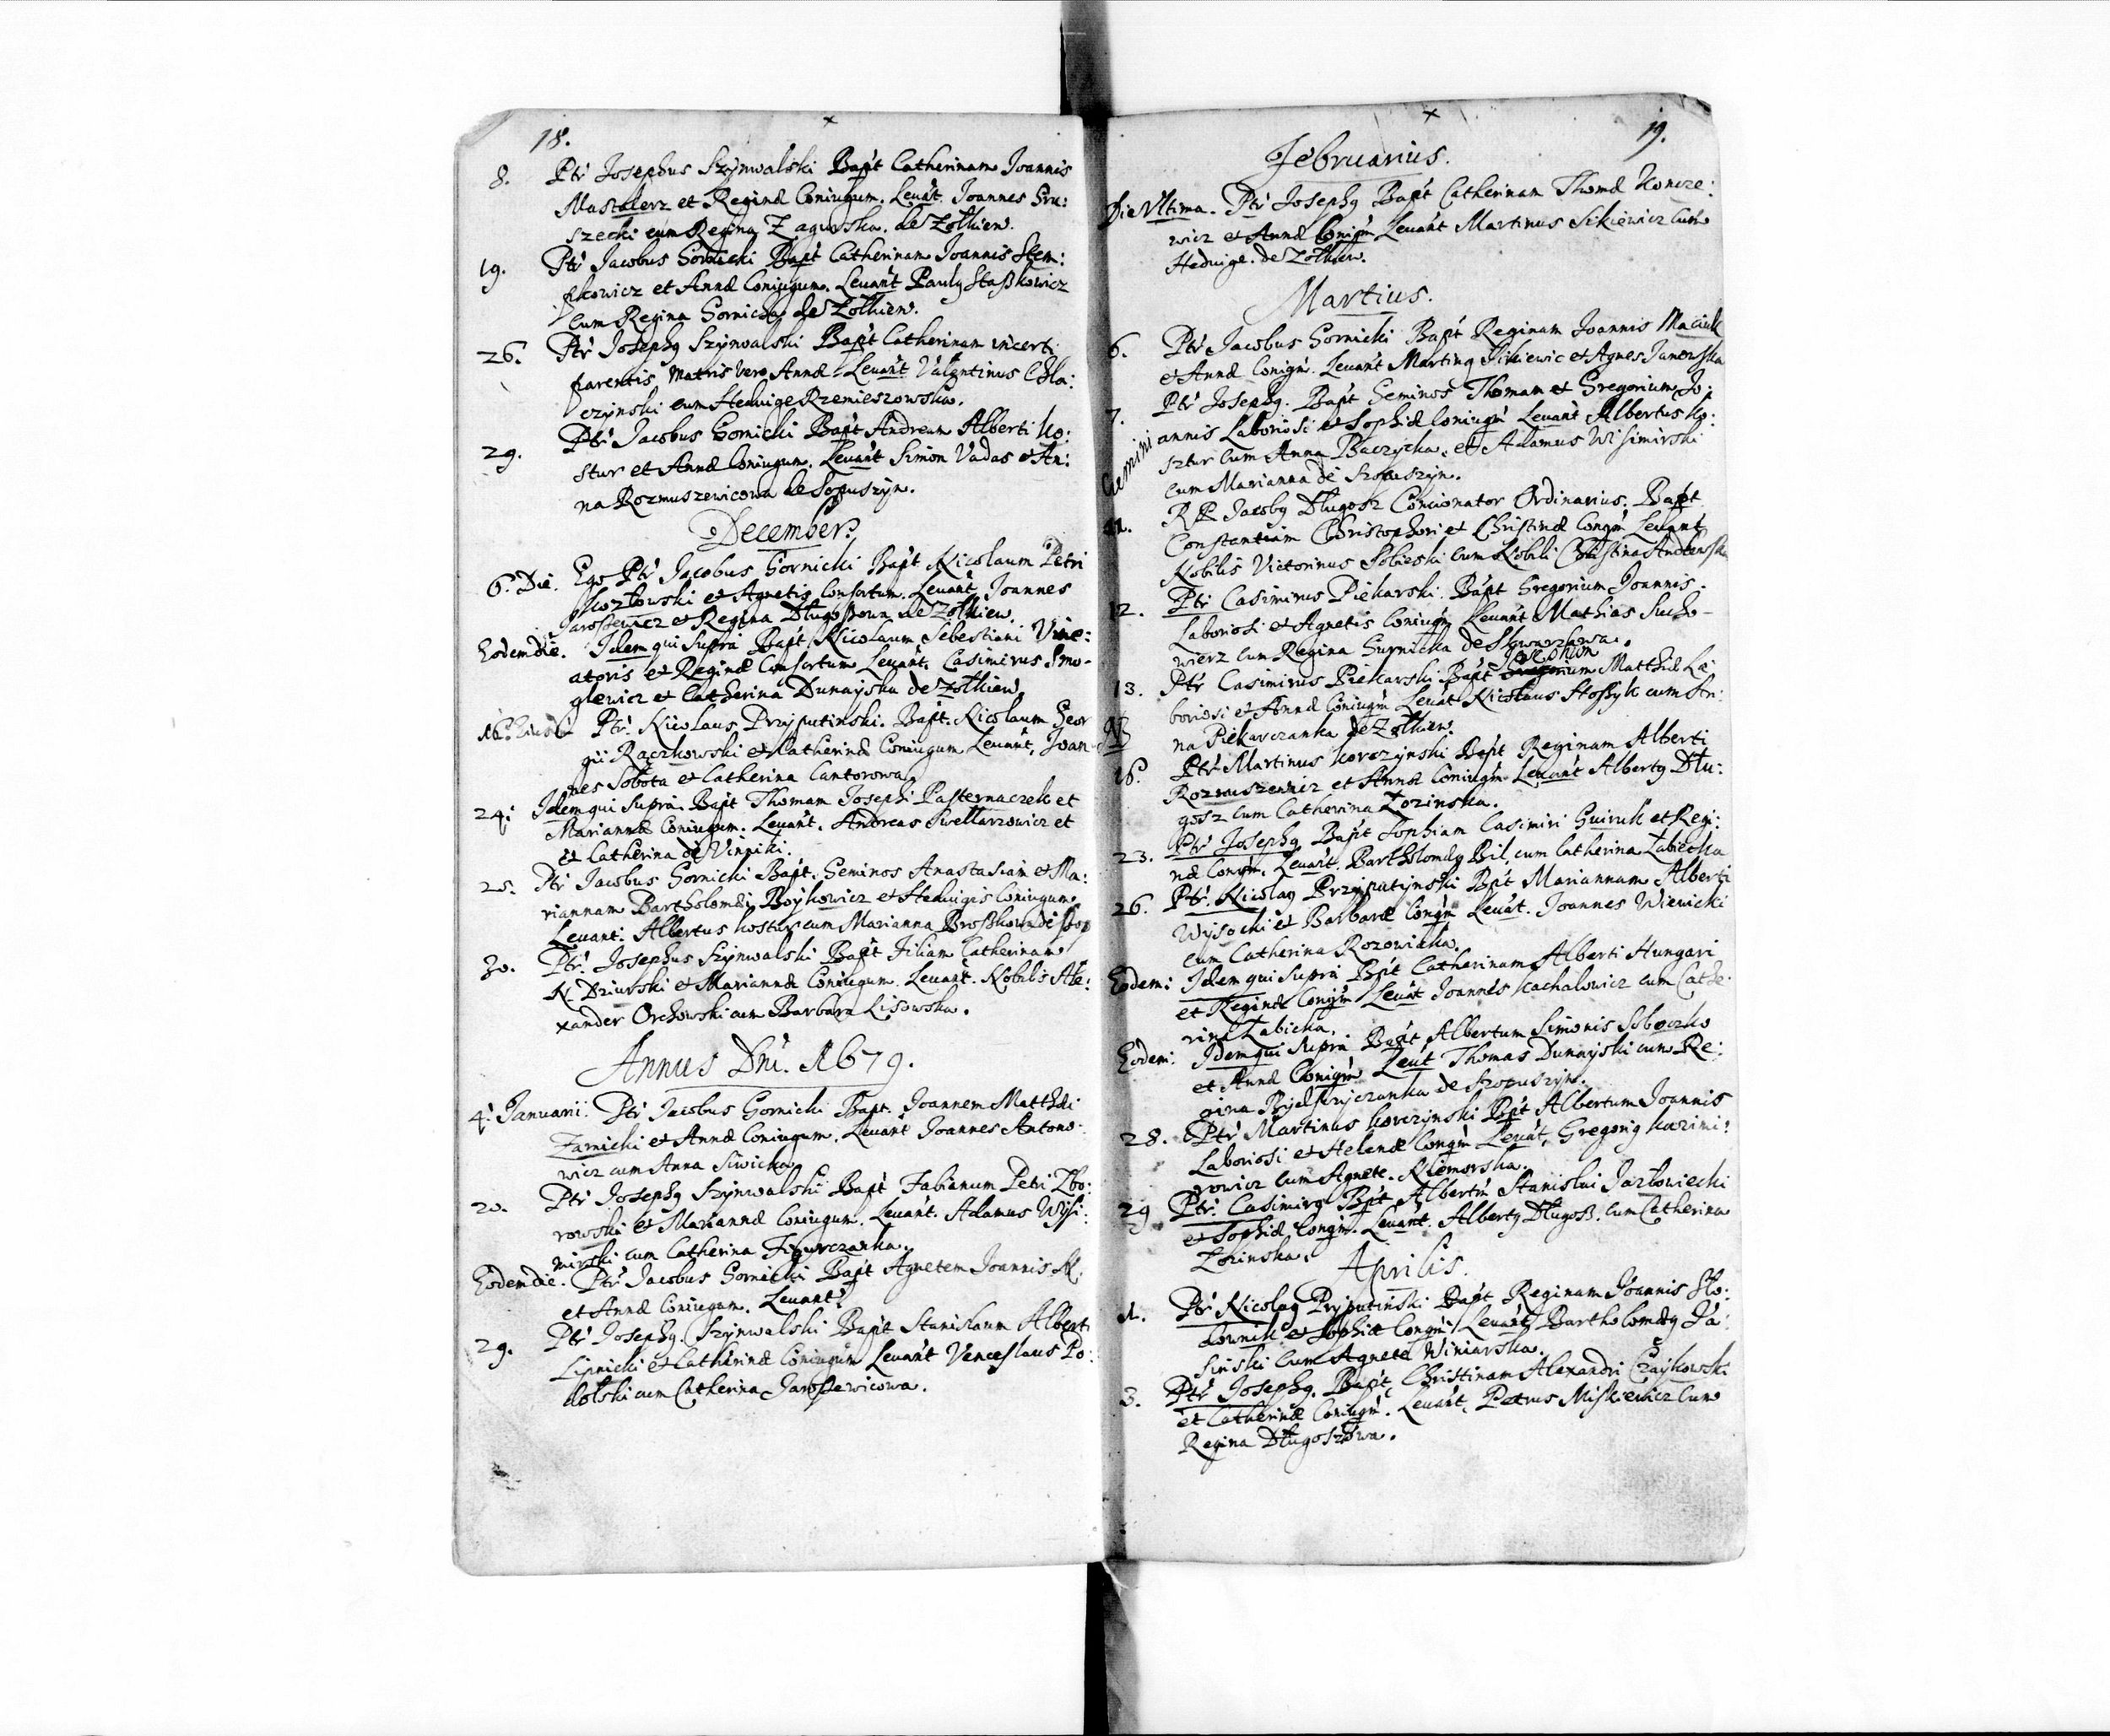 18.
8. Ptr Josephus Szynwalski Bapt Catherinam Joannis
Mastalerz et Reginæ Coniugum. Levant Joannes Gru:
szecki cum Regina Zagurska. de Zolkiew.
19. Ptr Jacobus Gornicki Bapt Catherinam Joannis Stem:
pkowicz et Annæ Coniugum. Levant Paulg Staßkowicz
Cum Regina Gornicka de Zołkiew.
26. Ptr Josephg Szynwalski Bapt Catherinam incerti
parentis Matris vero Annæ Levant Valentinus Chla:
czynski cum Hedvige Rzemieszowska.
29. Ptr Jacobus Gornicki Bapt Andream Alberti Ko:
stur et Annæ Coniugum. Levant Simon Vadas et An:
na Rozmuszewicowa de Sopuszyn.
December.
6. Die. Ego Ptr Jacobus Gornicki Bapt Nicolaum Petri
Kozłowski et Agnetis Consortum. Levant Joannes
Jaroßewicz et Regina Długoßowa de Zolkiew.
Eodem die. Idem qui supra Bapt Nicolaum Sebestiani Vine:
atoris et Reginæ Consortum Levant. Casimirus Smo-
glewicz et Catherina Dunayska de Zolkiew.
16. Ptr. Nicolaus Przyputinski. Bapt. Nicolaum Geor
gii Rączkowski et Catherinæ Coniugum Levant, Joan
nes Sobota et Catherina Cantorowa.
24. Idem qui supra. Bapt Thomam Josephi Pasternaczek et
Mariannæ Coniugum. Levant. Andreas Swellarzowicz et
et Catherina de Vinniki.
25. Ptr Jacobus Gornicki Bapt. Geminos Anastasiam et Ma:
riannam Bartholomæi Boykowicz et Hedvigis Coniugum.
Levant. Albertus Kostur cum Marianna Broßkowa de Sop
30. Ptr. Josephus Szynwalski Bapt Filiam Catherinam
N. Dziurski et Mariannæ Coniugum. Levant. Nobilis Ale:
xander Orchowski cum Barbara Lisowska.
Annus Dni. 1679.
4. Januarii. Ptr Jacobus Gornicki Bapt. Joannem Matthæi
Zarnicki et Annæ Coniugum. Levant Joannes Antono:
wicz cum Anna Siwicka.
20. Ptr Josephg Szynwalski Bapt Fabianum Petri Zbo:
rowski et Mariannæ Coniugum. Levant. Adamus Wysi:
mirski cum Catherina Figurczanka.
Eodem die. Ptr Jacobus Gornicki Bapt Agnetem Joannis N.
et Annæ Coniugum. Levant.
29. Ptr Josephg. Szynwalski Bapt Stanislaum Alberti
Lipnicki et Catherinæ Coniugum Levant Venceslaus Po:
dolski cum Catherina Jaroßewicowa.
19.
Februarius.
Die Ultima. Ptr Josephg Bapt Catherinam Thomæ Koncze:
wicz et Annæ Conigm Levant Martinus Sikiewicz Cum
Hedvige. de Zolkiew.
Martius.
6. Ptr Jacobus Gornicki Bapt Reginam Joannis Maciuk
et Annæ Conigm. Levant Marting Sikiewic et Agnes Janowska
7. Ptr Josephg. Bapt Geminos Thomam et Gregorium Jo:
Gemini annis Laboriosi et Sophiæ Coniugm Levant Albertus Ko:
sztur Cum Anna Baczycka. et Adamus Wisimirski
Cum Marianna de Szopuszyn.
11. R P. Jacobg Długosz Concionator Ordinarius. Bapt
Constantiam Christophori et Christinæ Congm Levant
Nobilis Victorinus Sobieski Cum Nobili Christina
12. Ptr Casimirus Piekarski. Bapt Gregorium Joannis.
Laboriosi et Agnetis Coniugm Levant Mathias Sucho-
wierz Cum Regina Gurnicka de Skwarzawa.
Josephum
13. Ptr Casimirus Piekarski Bapt Gregorium Matthiæ La:
boriosi et Annæ Coniugm Levat Nicolaus Stoßyk cum An:
NB na Piekarczanka de Zolkiew.
16. Ptr Martinus Korczynski Bapt Reginam Alberti
Rozmuszewicz et Annæ Coniugm Levant Albertg Dłu:
gosz Cum Catherina Lozinska.
23. Ptr Josephg Bapt Sophiam Casimiri Guiruk et Regi:
næ Congm. Levant. Bartholomæg Bil, cum Catherina Zabiecka
26. Ptr. Nicolag Przyputynski Bpt Mariannam Alberti
Wysocki et Barbaræ Congm Levat. Joannes Wiewicki
cum Catherina Rozowicka.
Eodem: Idem qui supra Bpt Catherinam Alberti Hungari
et Reginæ Congm Levat Joannes Kachalowicz cum Cathe:
rina Zabicka.
Eodem: Idem qui supra Bapt Albertum Simonis Soboczko
et Annæ Conigm Levt Thomas Dunayski cum Re:
gina de Szopuszyn.
28. Ptr Martinus Korczynski Bpt Albertum Joannis
Laboriosi et Helenæ Congm Levat, Gregorig Kazimi:
rowicz cum Agnete. Klemorska.
29 Ptr. Casimirg Bpt Albertm Stanislai Jazłowiecki
et Sophiæ Congm. Levant. Albertg Długoß. Cum Catherina
Lozinska.
Aprilis.
1. Ptr Nicolag Pryputinski Bapt Reginam Joannis Sło:
downik et Sophiæ Congm Levant Bartholomæg Ja:
sinski Cum Agnete Winiarska.
3. Ptr Josephg. Bapt Christinam Alexandri Czaykowski
et Catherinæ Coniugm. Levant, Petrus Miskiewicz Cum
Regina Długoszowa.